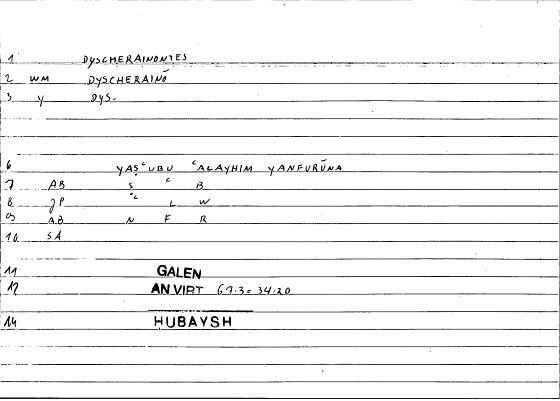 1 DYSCHERAINONTES
2 WM DYSCHERAINŌ
3 Y DYS-
6 YAṢʿUBU ʿALAYHIM YANFURŪNA
7 AB Ṣ ʿ B
8 JP ʿ L W
9 AB N F R
10 SA
11 GALEN
12 AN VIRT 67.3 = 34.20
14 HUBAYSH